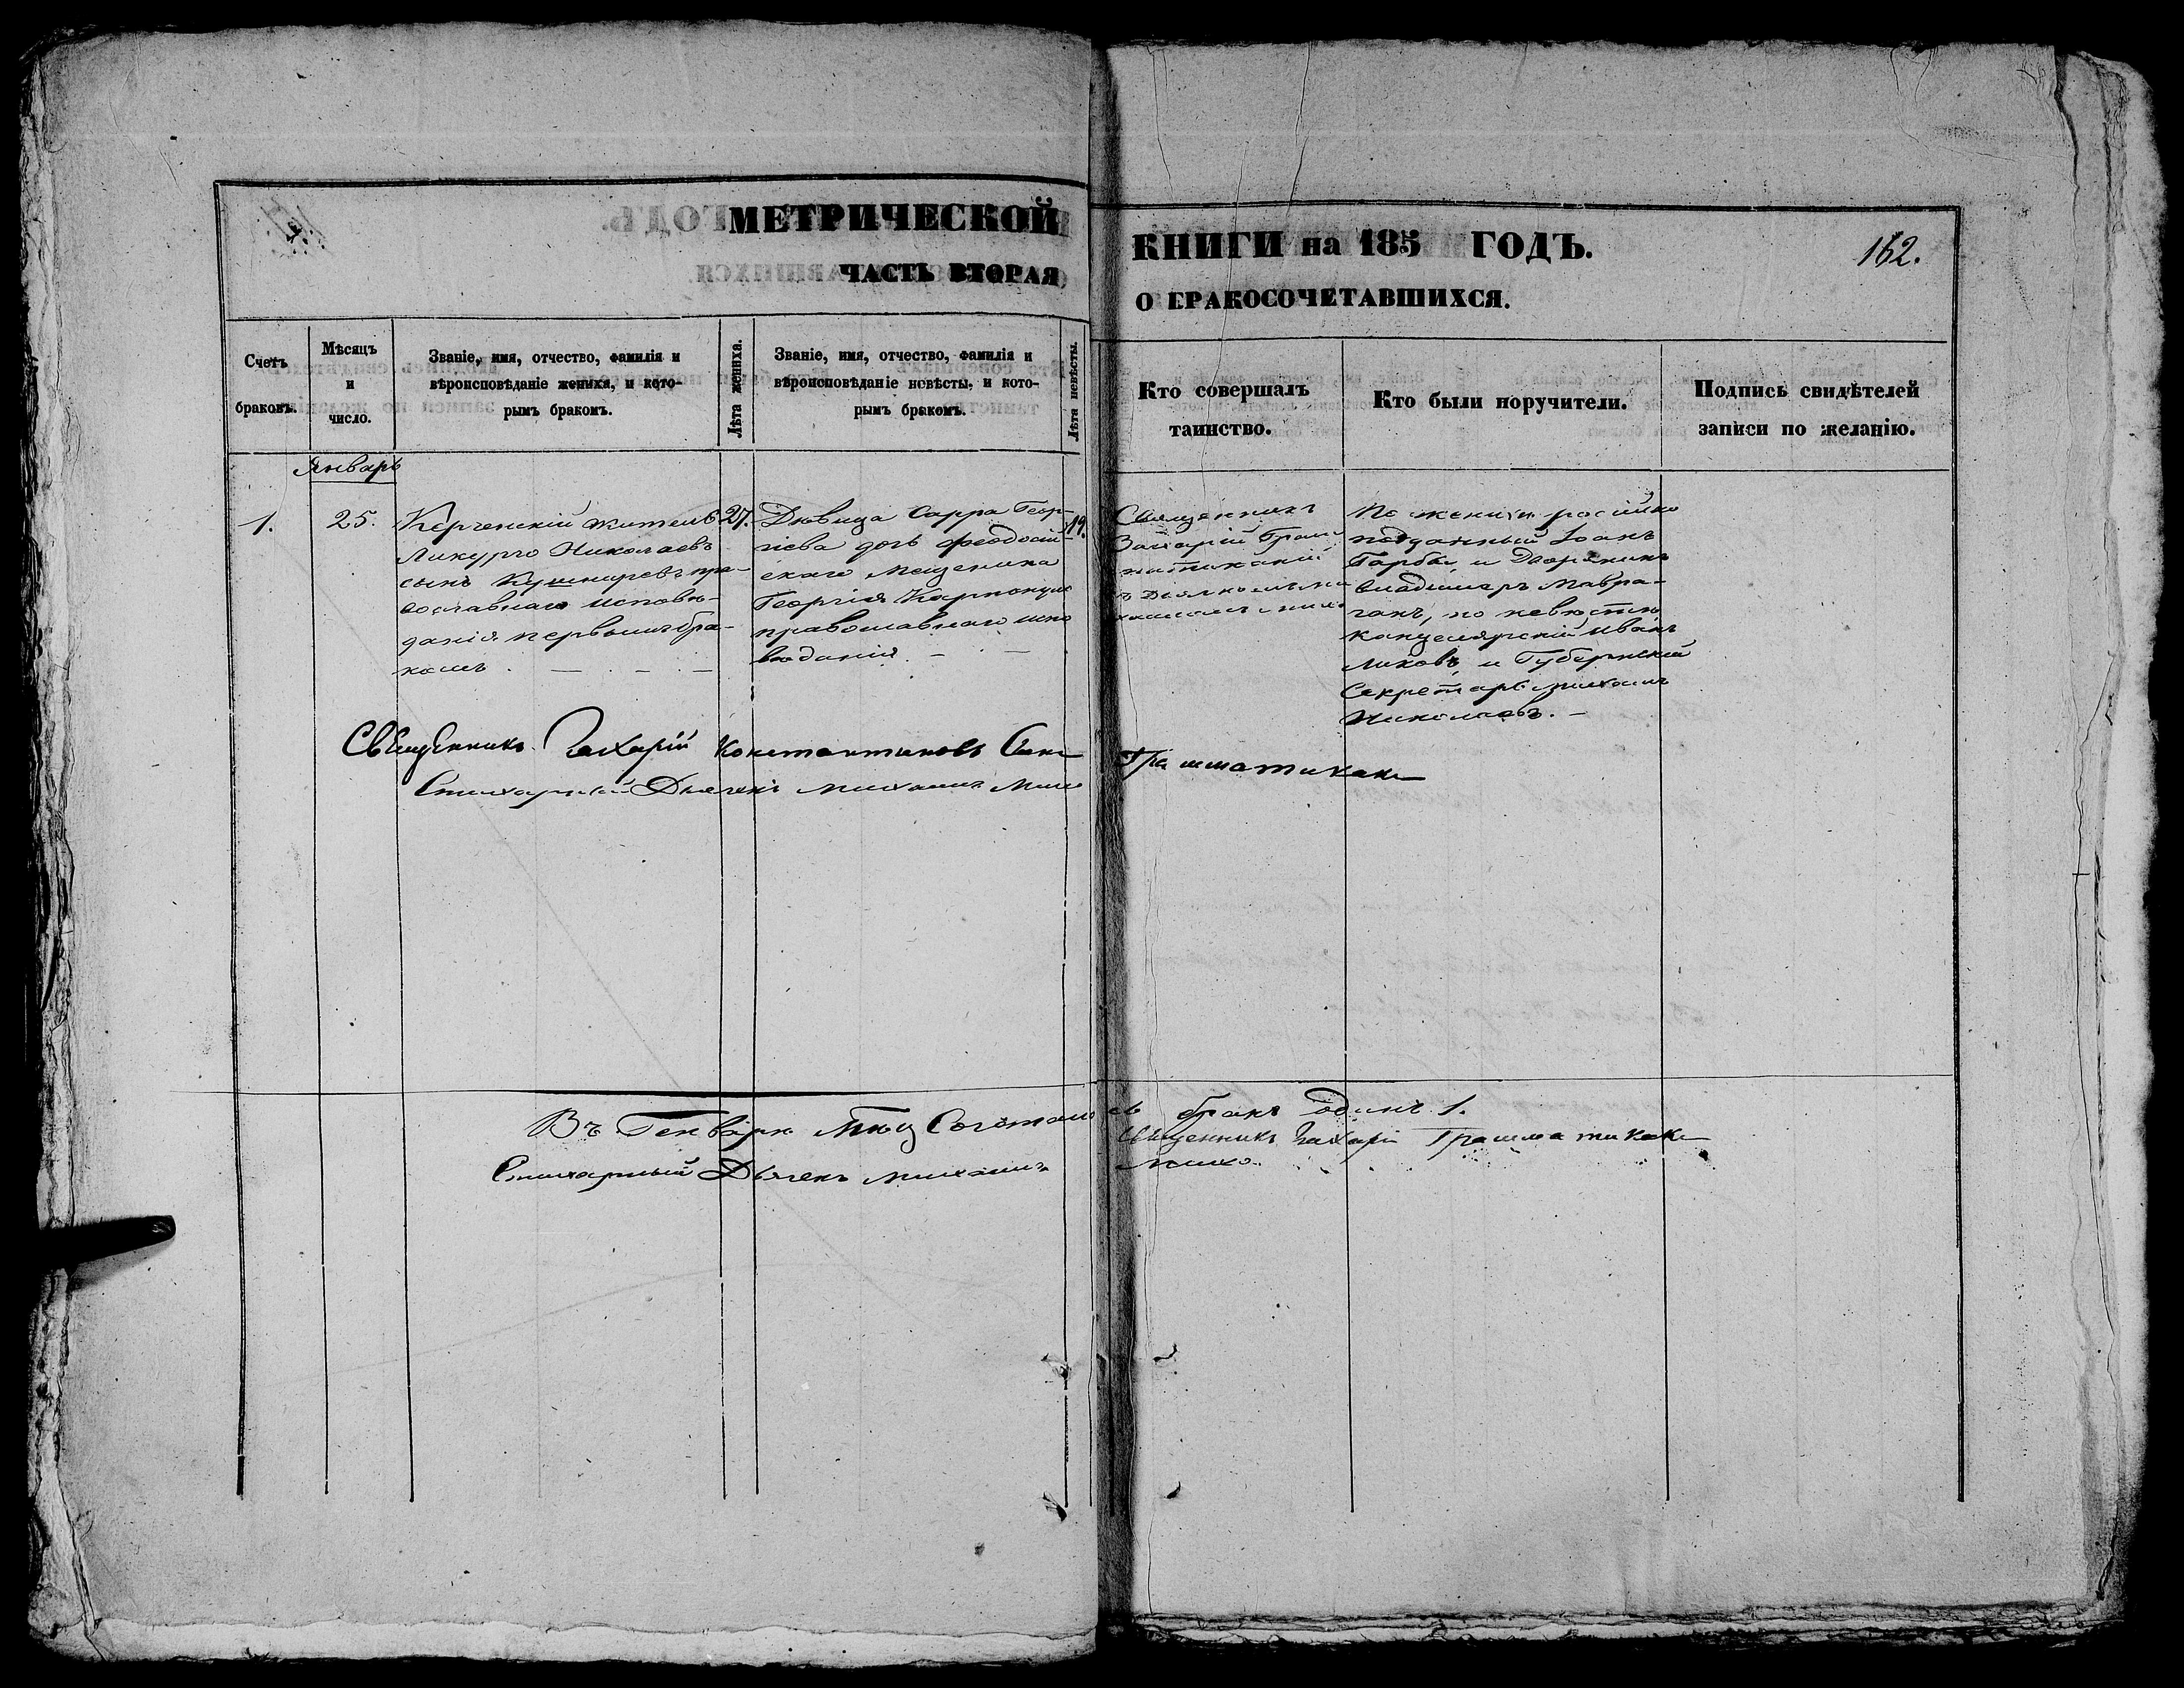 МЕТРИЧЕСКОЙ КНИГИ на 185 ГОДЪ.
162.
ЧАСТЬ ВТОРАЯ О БРАКОСОЧЕТАВШИХСЯ.
Счетъ браковъ.
Мѣсяцъ и число.
Званіе, имя, отчество, фамилія и
вѣроисповѣданіе жениха, и кото-
рымъ бракомъ.
Лѣта жениха.
Званіе, имя, отчество, фамилія и
вѣроисповѣданіе невѣсты, и кото-
рымъ бракомъ.
Лѣта невѣсты.
Кто совершалъ
таинство.
Кто были поручители.
Подпись свидѣтелей
записи по желанію.
Январь
1.
25.
Керченскій житель
Ликурго Николаевъ
сынъ Кушнаревъ пра-
вославнаго исповѣ-
данія первымъ бра-
комъ
27.
Дѣвица Сарра Геор-
гіева дочь Феодосій-
скаго Мещанина
Георгія
православнаго испо
вѣданія
19.
Священникъ
Захарій Грам
матикакій
По женихѣ
подданный Іоанъ
Гарбы, и Дворянинъ
Владимеръ Мавра-
ганъ, по невѣстѣ
канцелярскій Иванъ
Ликовъ, и Губернскій
Секретарь Михаилъ
Николаевъ.
Священникъ Захарій Константиновъ Сынъ Грамматикаки
Стихарный Дьячекъ Михаилъ
Въ Генварѣ Мцѣ браκъ одинъ 1.
Священникъ Захарій Грамматикаки
Стихарный Дьячекъ Михаилъ